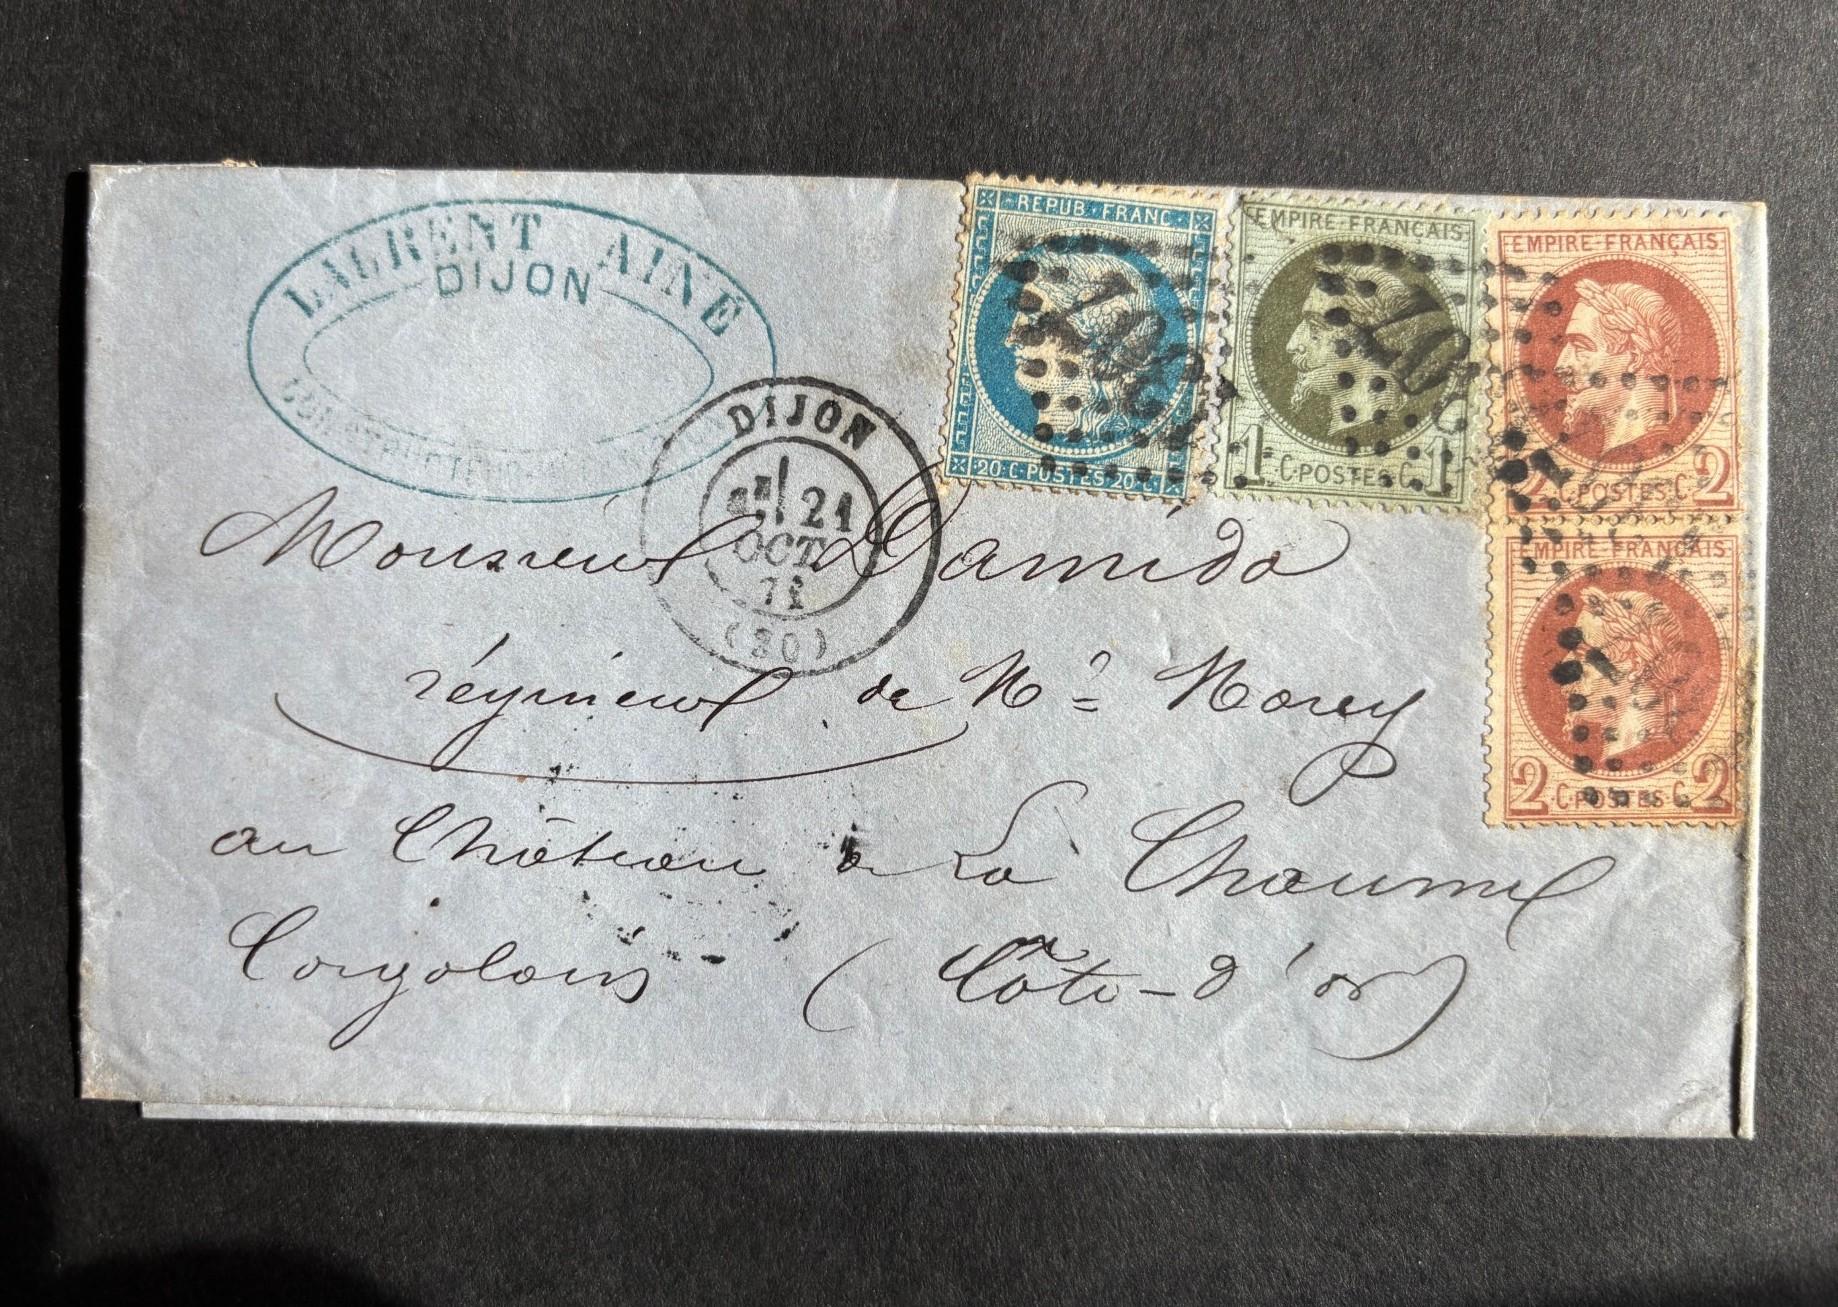 LAURENT AINÉ
DIJON
DIJON
21
OCT.
71
(20)
REPUB. FRANC.
20 C. POSTES 20 C.
EMPIRE FRANÇAIS
1 C. POSTES C. 1
EMPIRE FRANÇAIS
2 C. POSTES C. 2
EMPIRE FRANÇAIS
2 C. POSTES C. 2
Monsieur Damido
régisseur de Mr Morey
au Château de La Chaume
Corgoloin
(Côte-d'or)